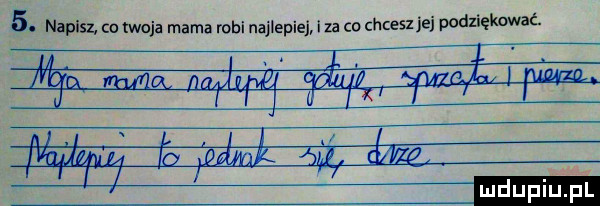 5. Napisz, co twoja mama robi najlepiej, i za co chcesz jej podziękować.
Moja mama najlepiej gotuje, sprząta i pierze.
Najlepiej to jednak się drze
mdupiu.pl